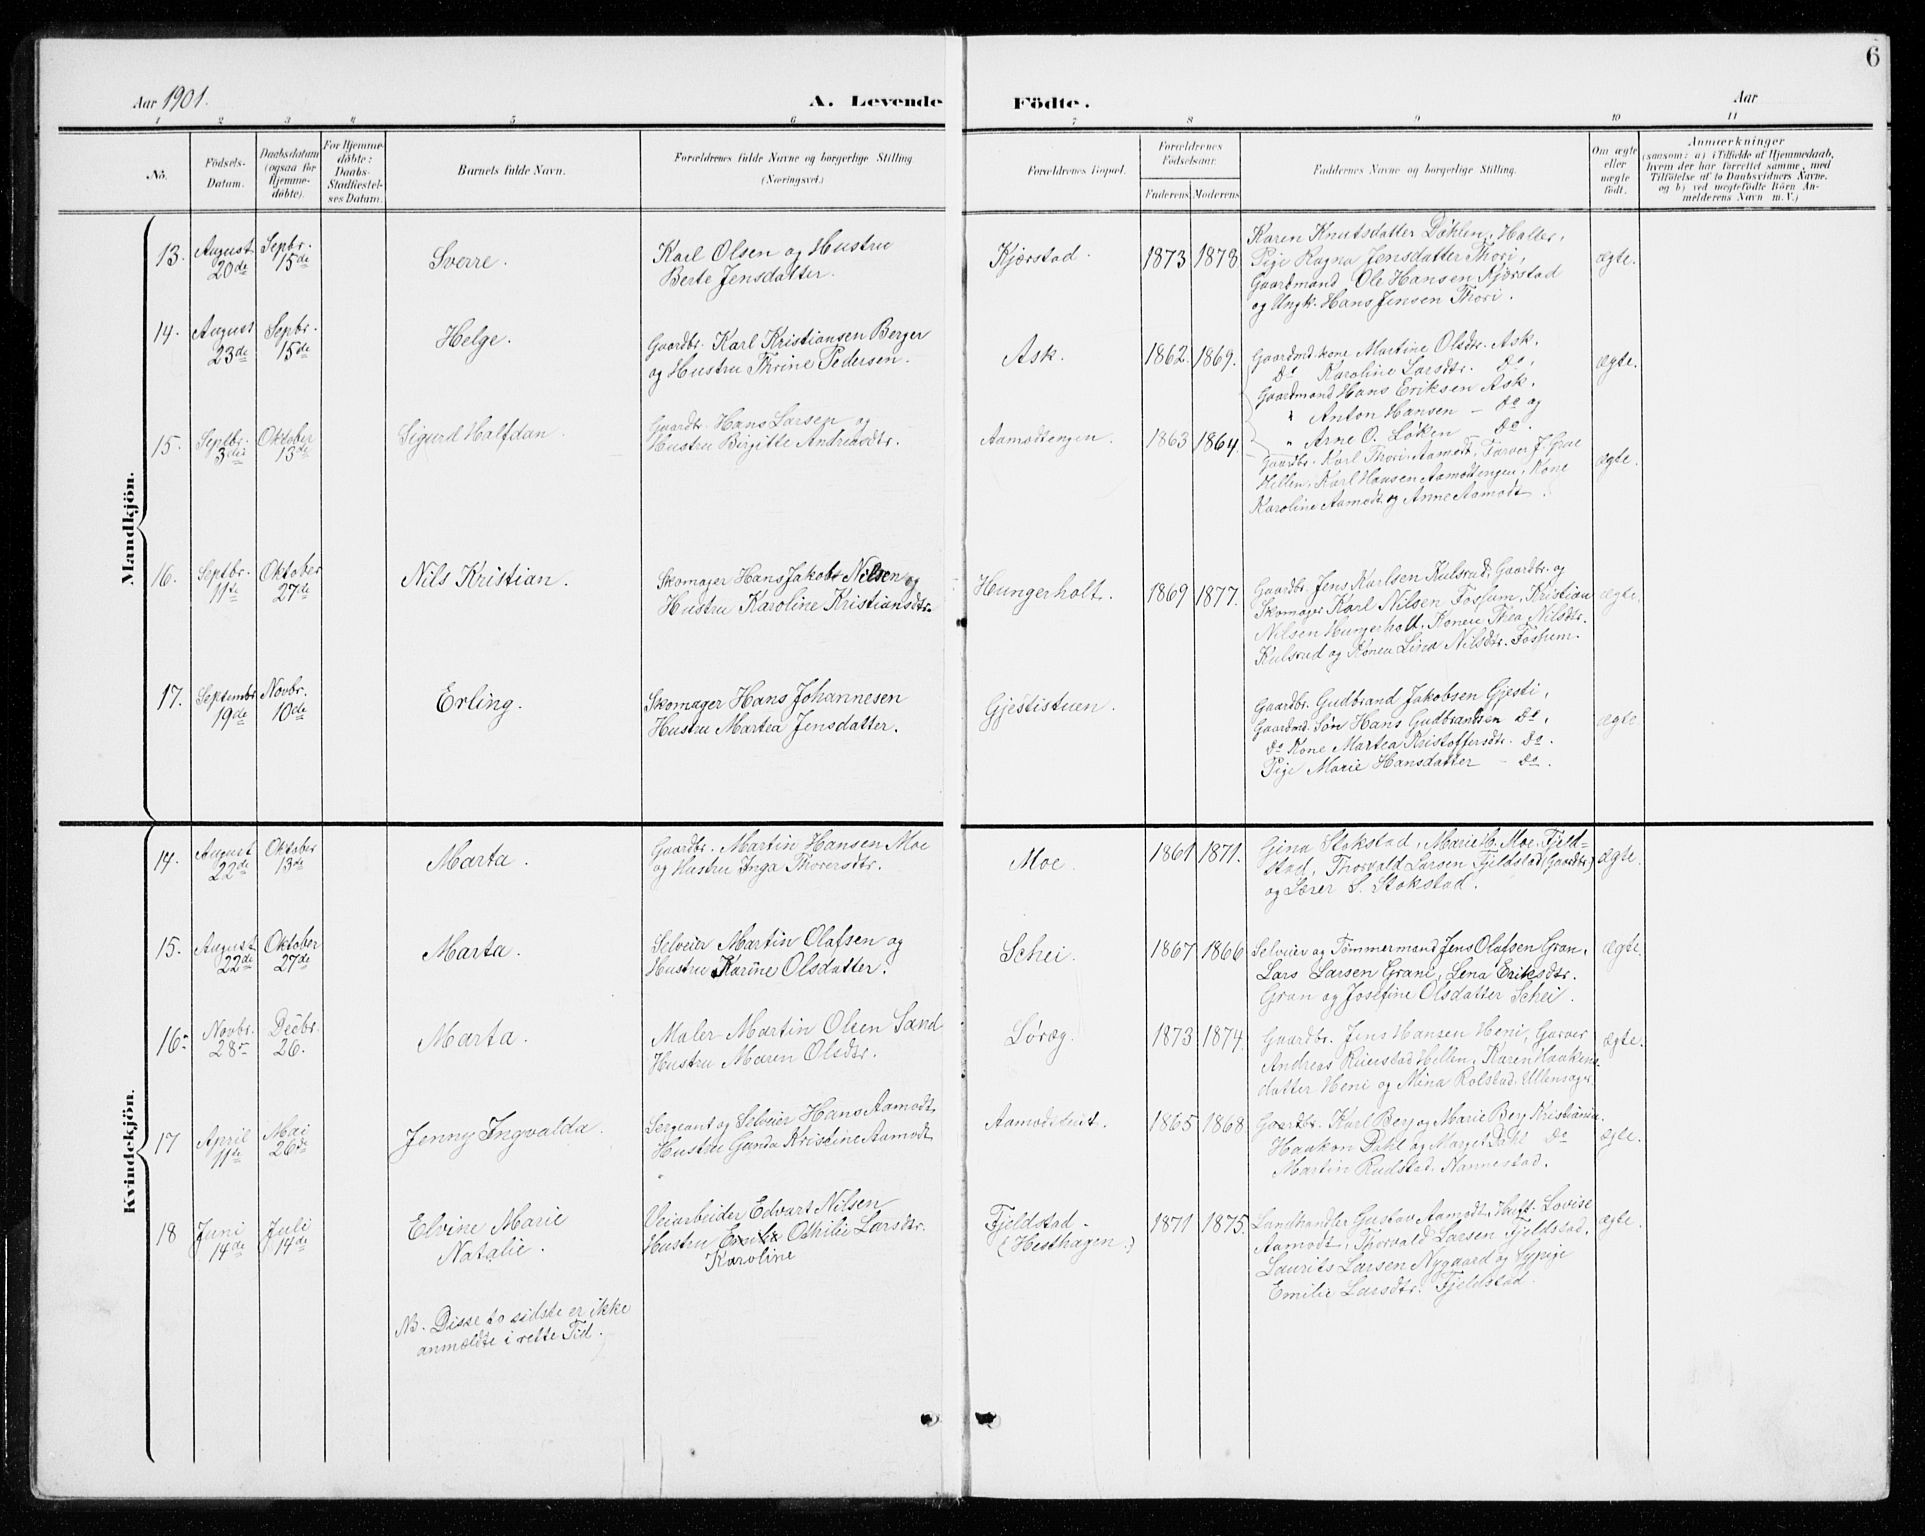 6
Aar 1901.
A. Levende Födte.
Aar
1 2 3 4 5 6 7 8 9 10 11
No.
Födsels-
Datum.
Daabsdatum
(ogsaa för
Hjemme-
døbte).
For Hjemme-
døbte:
Daabs-
Stadfæstel-
ses Datum.
Barnets fulde Navn.
Forældrenes fulde Navne og borgerlige Stilling
(Næringsvei.)
Forældrenes Bopæl.
Forældrenes
Födselsaar.
Faderens Moderens
Faddernes Navne og borgerlige Stilling.
Om ægte
eller
uægte
født.
Anmærkninger
(saasom: a) i Tilfælde af Hjemmedaab,
hvem der har forrettet samme, med
Tilföielse af to Daabsvidners Navne.
og b) ved uægtefödte Börn An-
melderens Navn m. V.)
Mandkjön.
13. August 20de Sepbr. 15de
Sverre.
Karl Olsen og Hustru
Berte Jensdatter.
Kjærstad. 1873 1878
Karen Knutsdatter Døhlen, Holter,
Pige Ragna Jensdatter Thori,
Gaardmand Ole Hansen Kjørstad
og Ungk. Hans Jensen Thori.
ægte.
14. August 23de Sepbr. 15de
Helge.
Gaardbr. Karl Kristiansen Berger
og Hustru Thrine Pedersen.
Ask. 1862 1869.
Gaardmd. kone Martine Olsdtr. Ask,
Do Karoline Larsdtr. Do,
Gaardmand Hans Eriksen Ask,
" Anton Hansen – Do og
" Arne O. Løken Do.
ægte.
15. Septbr. 3die Oktober 13de
Sigurd Halfdan.
Gaardbr. Hans Larsen og
Hustru Birgitte Andreasdtr.
Aamodtengen. 1863 1864.
Gaardbr. Karl Thori Aamodt, Farver J.
Hellen, Karl Hansen Aamodtengen, Kone
Karoline Aamodt og Anne Aamodt.
ægte.
16. Septbr. 11te Oktober 27de
Nils Kristian.
Skomager Hans Jakob Nilsen og
Hustru Karoline Kristiansdtr.
Hungerholt. 1869 1877.
Gaardbr. Jens Karlsen Kulsrud, Gaardbr. og
Skomager Karl Nilsen Fossum, Kristian
Nilsen Hungerholt, Konen Thea Nilsdtr.
Kulsrud og Konen Lina Nilsdtr. Fossum.
ægte.
17. Septembr 19de Novbr. 10de
Erling.
Skomager Hans Johannesen
Hustru Martea Jensdatter.
Gjestistuen.
Gaardbr. Gudbrand Jakobsen Gjesti,
Gaardmd. Søn Hans Gudbrandsen Do,
Do Kone Martea Kristoffersdtr. Do.
Pige Marie Hansdatter – Do.
ægte
Kvindekjön.
14. August 22de Oktober 13de
Marta.
Gaardbr. Martin Hansen Moe
og Hustru Inga Thorersdtr.
Moe. 1861 1871.
Gina Stokstad, Marie H. Moe, Fjeld=
stad, Thorvald Larsen Fjeldstad (Gaardbr.)
og Lærer S. Stokstad.
ægte.
15. August 22de Oktober 27de
Marta.
Selveier Martin Olafsen og
Hustru Karine Olsdatter.
Schei. 1867 1866
Selveier og Tømmermand Jens Olafsen Gran,
Lars Larsen Grani, Lena Eriksdtr.
Gran og Josefine Olsdatter Schei.
ægte.
16 Novbr. 28 Decbr. 26.
Marta.
Maler Martin Olsen Sand
Hustru Maren Olsdtr.
Løræg. 1873 1874.
Gaardbr. Jens Hansen Heni, Garver
Andreas Hellen, Karen Haakens
datter Heni og Mina Rolstad, Ullensager.
ægte.
17 April 11te Mai 26de
Jenny Ingvalda.
Sergeant og Selveier Hans Aamodt
Hustru Gunda Kristine Aamodt
1865 1868
Gaardbr. Karl Berg og Marie Berg Kristiania.
Haakon Dahl og Margit Dahl Do
Martin Rudstad, Nannestad.
ægte.
18 Juni 14de Juli 14de
Elvine Marie
Natalie.
Veiarbeider Edvart Nilsen
Hustru Othilie Larsdtr.
Karoline
Fjeldstad –
(Hesthagen.) 1871 1875.
Landhandler Gustav Aamodt, Lovise
Aamodt, Thorvald Larsen Fjeldstad,
Laurits Larsen Nygaard og Sypige
Emilie Larsdtr. Fjeldstad.
ægte.
NB. Disse to sidste er ikke
anmældte i rette Tid.